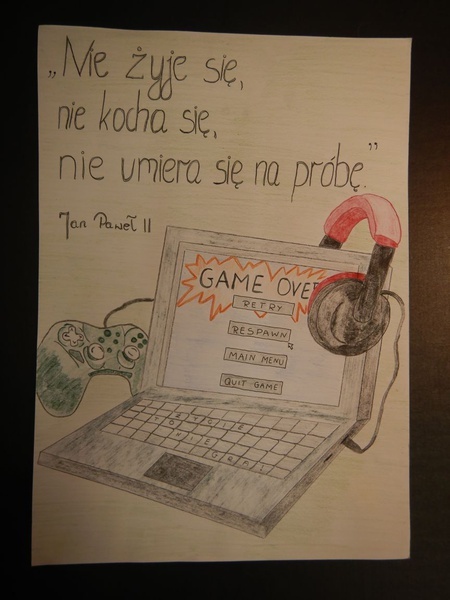 „Nie żyje się,
nie kocha się,
nie umiera się na próbę.”
Jan Paweł II
GAME OVE
RETRY
RESPAWN
MAIN MENU
QUIT GAME